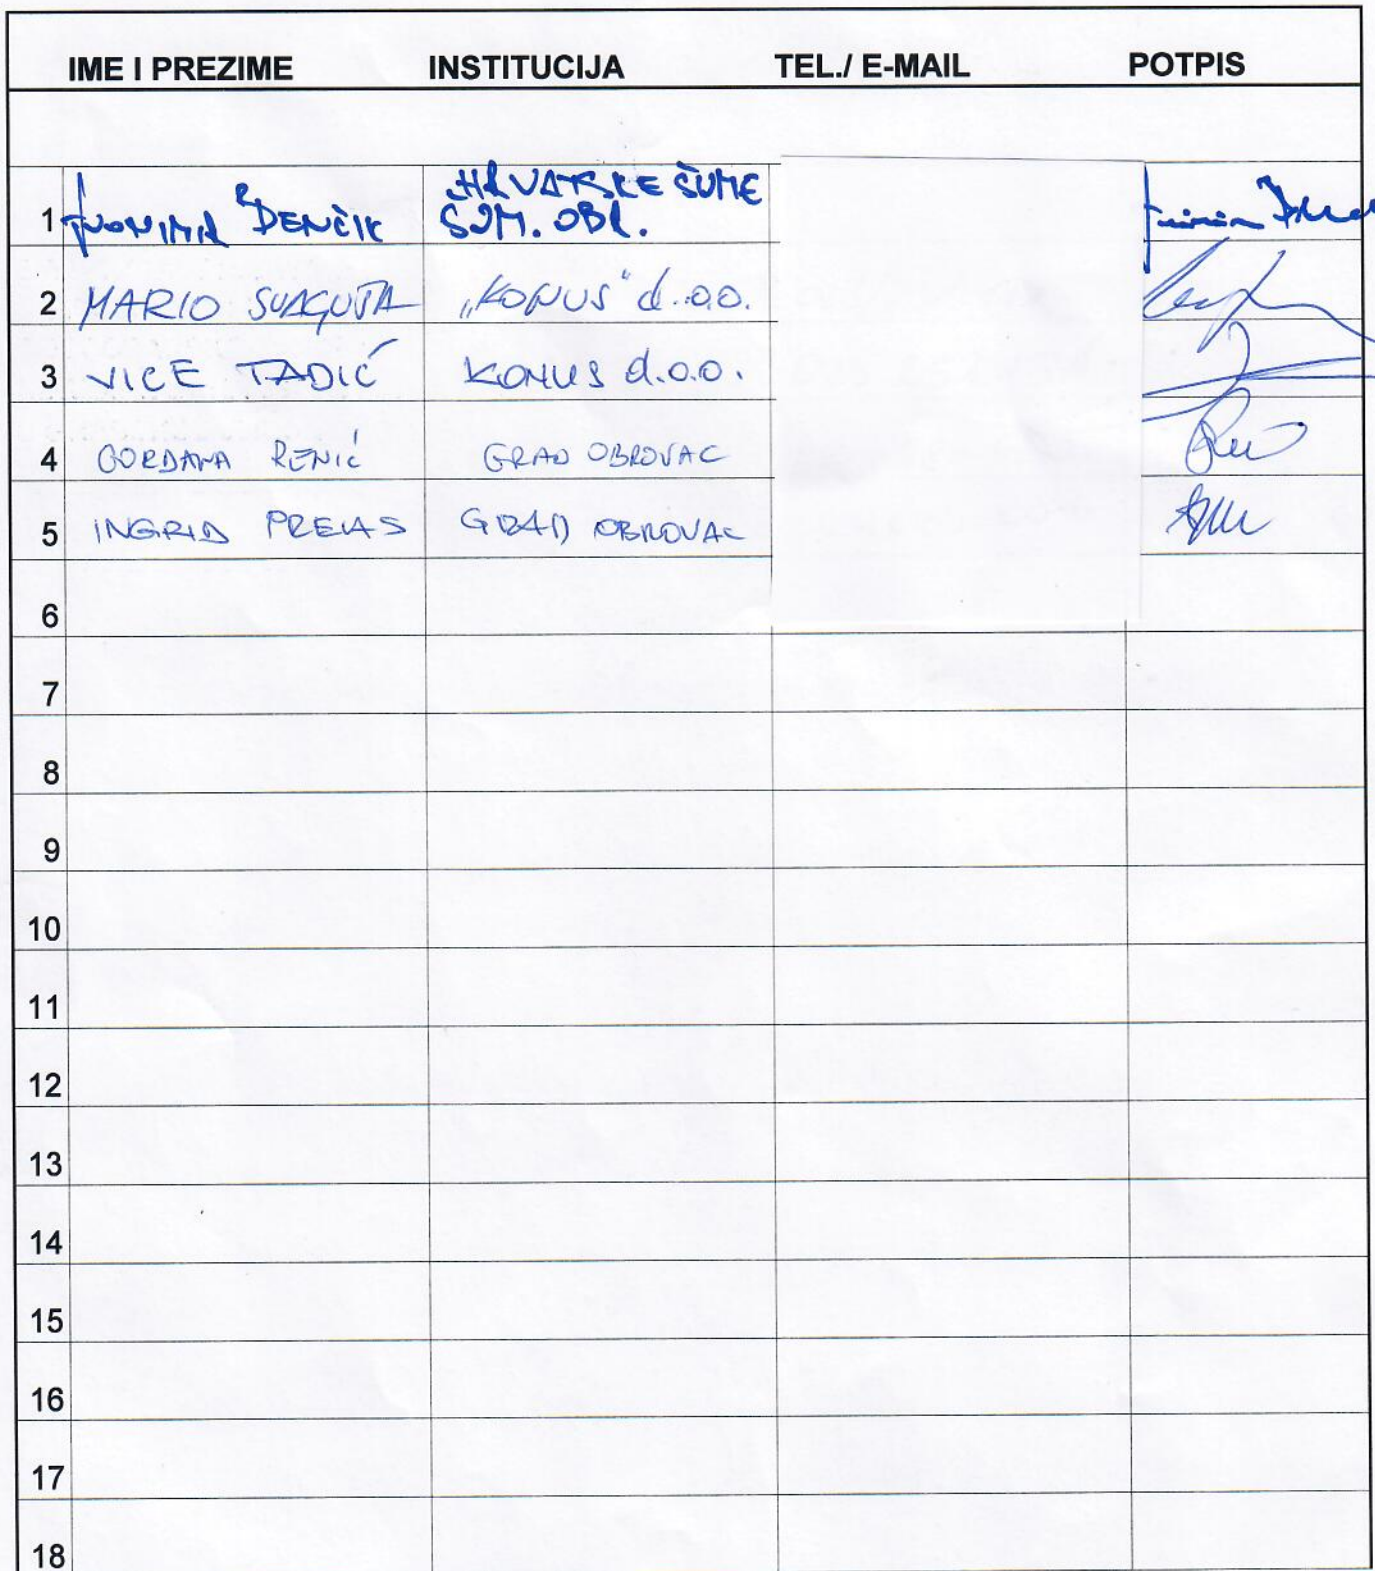 IME I PREZIME INSTITUCIJA TEL./ E-MAIL POTPIS
HRVATSKE ŠUME
1 DENČIK ŠUM. OBR.
2 MARIO „KONUS" d.o.o.
3 VICE TADIĆ KONUS d.o.o.
4 GORDANA RENIĆ GRAD OBROVAC
5 INGRID GRAD OBROVAC
6
7
8
9
10
11
12
13
14
15
16
17
18